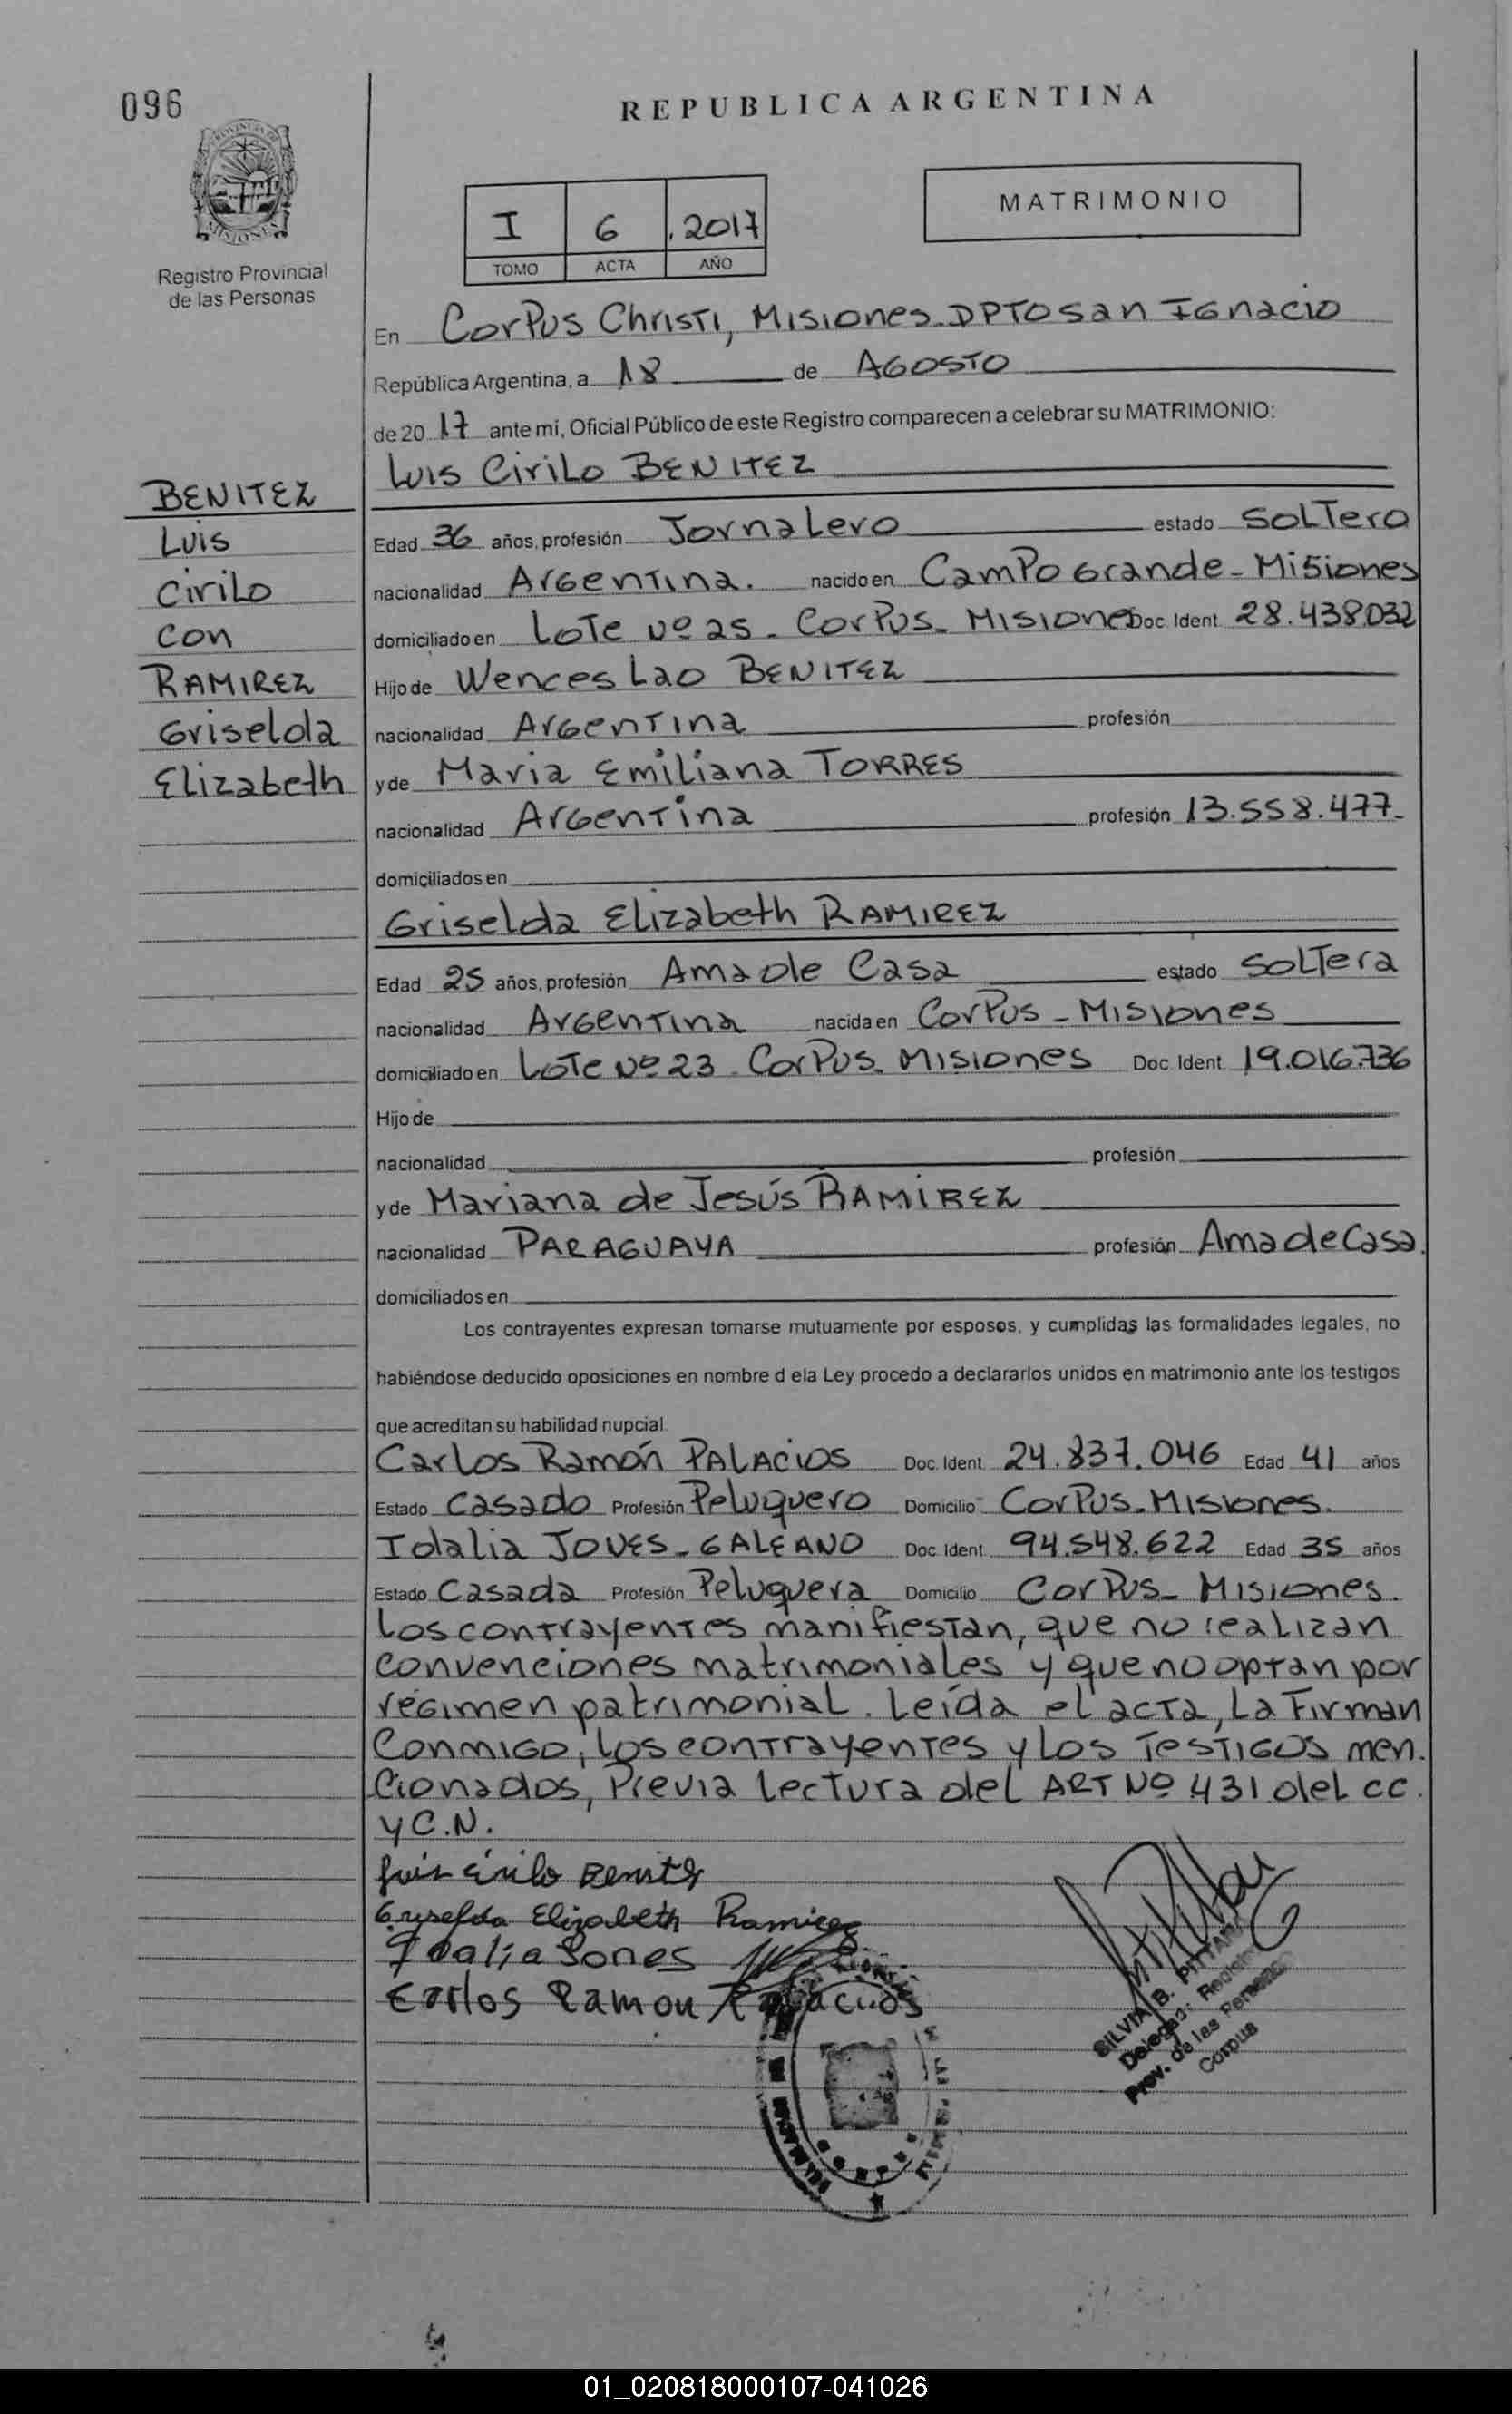 096
REPUBLICA ARGENTINA
PROVINCIA DE
MISIONES
Registro Provincial
de las Personas
I 6 2017
TOMO ACTA AÑO
MATRIMONIO
En Corpus Christi, Misiones-DPTO San Ignacio
República Argentina, a 18 de AGOSTO
de 20 17 ante mi, Oficial Público de este Registro comparecen a celebrar su MATRIMONIO:
Luis Cirilo BENITEZ
BENITEZ
Luis
Cirilo
con
RAMIREZ
Griselda
Elizabeth
Edad 36 años, profesión Jornalero estado Soltero
nacionalidad Argentina. nacido en Campo Grande - Misiones
domiciliado en Lote Nº 25 - Corpus - Misiones Doc. Ident. 28.438.032
Hijo de Wenceslao BENITEZ
nacionalidad Argentina profesión
y de Maria Emiliana TORRES
nacionalidad Argentina profesión 13.558.477-
domiciliados en
Griselda Elizabeth RAMIREZ
Edad 25 años, profesión Ama de Casa estado Soltera
nacionalidad Argentina nacida en Corpus - Misiones
domiciliado en Lote Nº 23 - Corpus - Misiones Doc. Ident. 19.016.736
Hijo de
nacionalidad profesión
y de Mariana de Jesús RAMIREZ
nacionalidad PARAGUAYA profesión Ama de Casa.
domiciliados en
Los contrayentes expresan tomarse mutuamente por esposos, y cumplidas las formalidades legales, no
habiéndose deducido oposiciones en nombre d ela Ley procedo a declararlos unidos en matrimonio ante los testigos
que acreditan su habilidad nupcial.
Carlos Ramón PALACIOS Doc. Ident. 24.837.046 Edad 41 años
Estado Casado Profesión Peluquero Domicilio Corpus - Misiones.
Idalia JONES - GALEANO Doc. Ident. 94.548.622 Edad 35 años
Estado Casada Profesión Peluquera Domicilio Corpus - Misiones.
Los contrayentes manifiestan, que no realizan
convenciones matrimoniales y que no optan por
régimen patrimonial. Leída el acta, La Firman
Conmigo, los contrayentes y Los Testigos men.
cionados, Previa Lectura del ART Nº 431 del CC.
y C.N.
Luis Cirilo Benitez
Griselda Elizabeth Ramirez
Idalia Jones
Carlos Ramon Palacios
SILVIA B.
Delegada Registro
Prov. de las Personas
Corpus
01_020818000107-041026